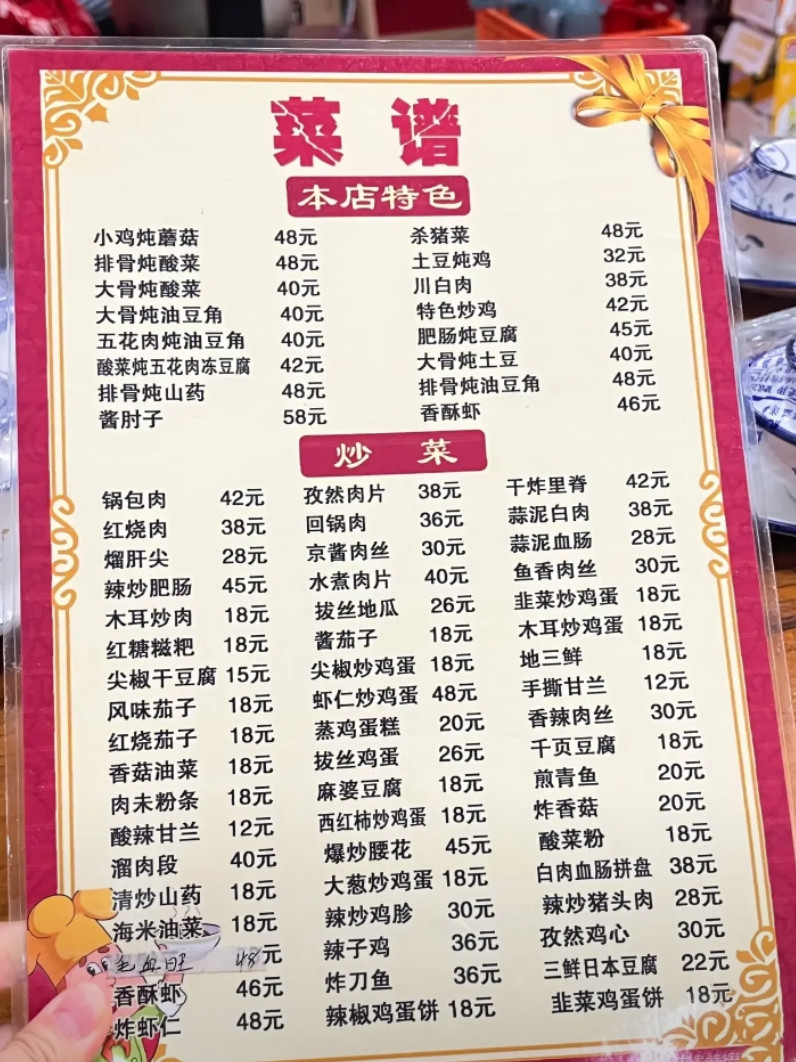 菜谱
本店特色
小鸡炖蘑菇 48元 杀猪菜 48元
排骨炖酸菜 48元 土豆炖鸡 32元
大骨炖酸菜 40元 川白肉 38元
大骨炖油豆角 40元 特色炒鸡 42元
五花肉炖油豆角 40元 肥肠炖豆腐 45元
酸菜炖五花肉冻豆腐 42元 大骨炖土豆 40元
排骨炖山药 48元 排骨炖油豆角 48元
酱肘子 58元 香酥虾 46元
炒菜
锅包肉 42元 孜然肉片 38元 干炸里脊 42元
红烧肉 38元 回锅肉 36元 蒜泥白肉 38元
熘肝尖 28元 京酱肉丝 30元 蒜泥血肠 28元
辣炒肥肠 45元 水煮肉片 40元 鱼香肉丝 30元
木耳炒肉 18元 拔丝地瓜 26元 韭菜炒鸡蛋 18元
红糖糍粑 18元 酱茄子 18元 木耳炒鸡蛋 18元
尖椒干豆腐 15元 尖椒炒鸡蛋 18元 地三鲜 18元
风味茄子 18元 虾仁炒鸡蛋 48元 手撕甘兰 12元
红烧茄子 18元 蒸鸡蛋糕 20元 香辣肉丝 30元
香菇油菜 18元 拔丝鸡蛋 26元 千页豆腐 18元
肉未粉条 18元 麻婆豆腐 18元 煎青鱼 20元
酸辣甘兰 12元 西红柿炒鸡蛋 18元 炸香菇 20元
溜肉段 40元 爆炒腰花 45元 酸菜粉 18元
清炒山药 18元 大葱炒鸡蛋 18元 白肉血肠拼盘 38元
海米油菜 18元 辣炒鸡胗 30元 辣炒猪头肉 28元
毛血旺 48元 辣子鸡 36元 孜然鸡心 30元
香酥虾 46元 炸刀鱼 36元 三鲜日本豆腐 22元
炸虾仁 48元 辣椒鸡蛋饼 18元 韭菜鸡蛋饼 18元